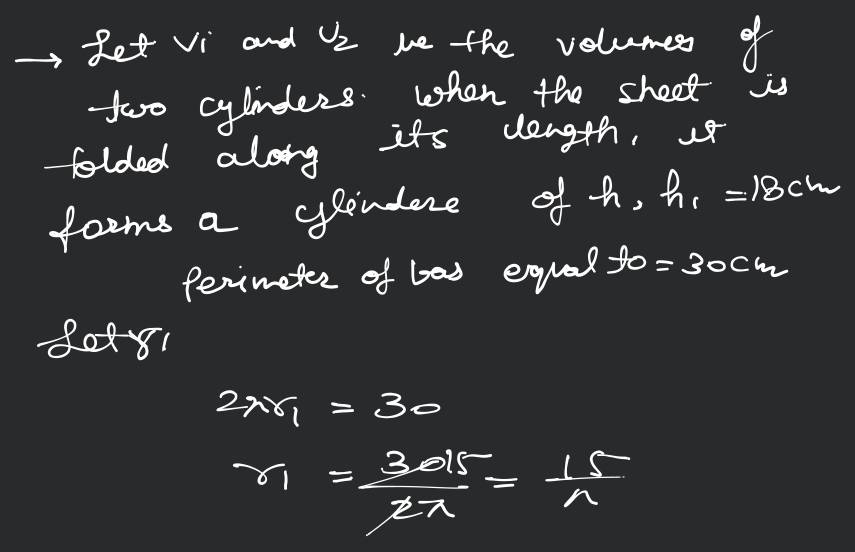 → Let V1 and V2 be the volumes of
two cylinders. When the sheet is
folded along its length, it
forms a cylindere of h, h1 = 18cm
Perimeter of bas equal to = 30cm
Let r1
2πr1 = 30
r1 = 30 15 / 2π = 15 / π